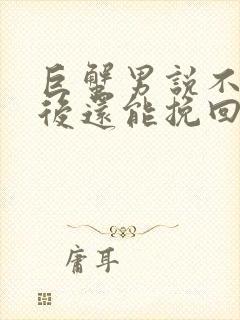 巨蟹男說不
後還能挽回
庸耳